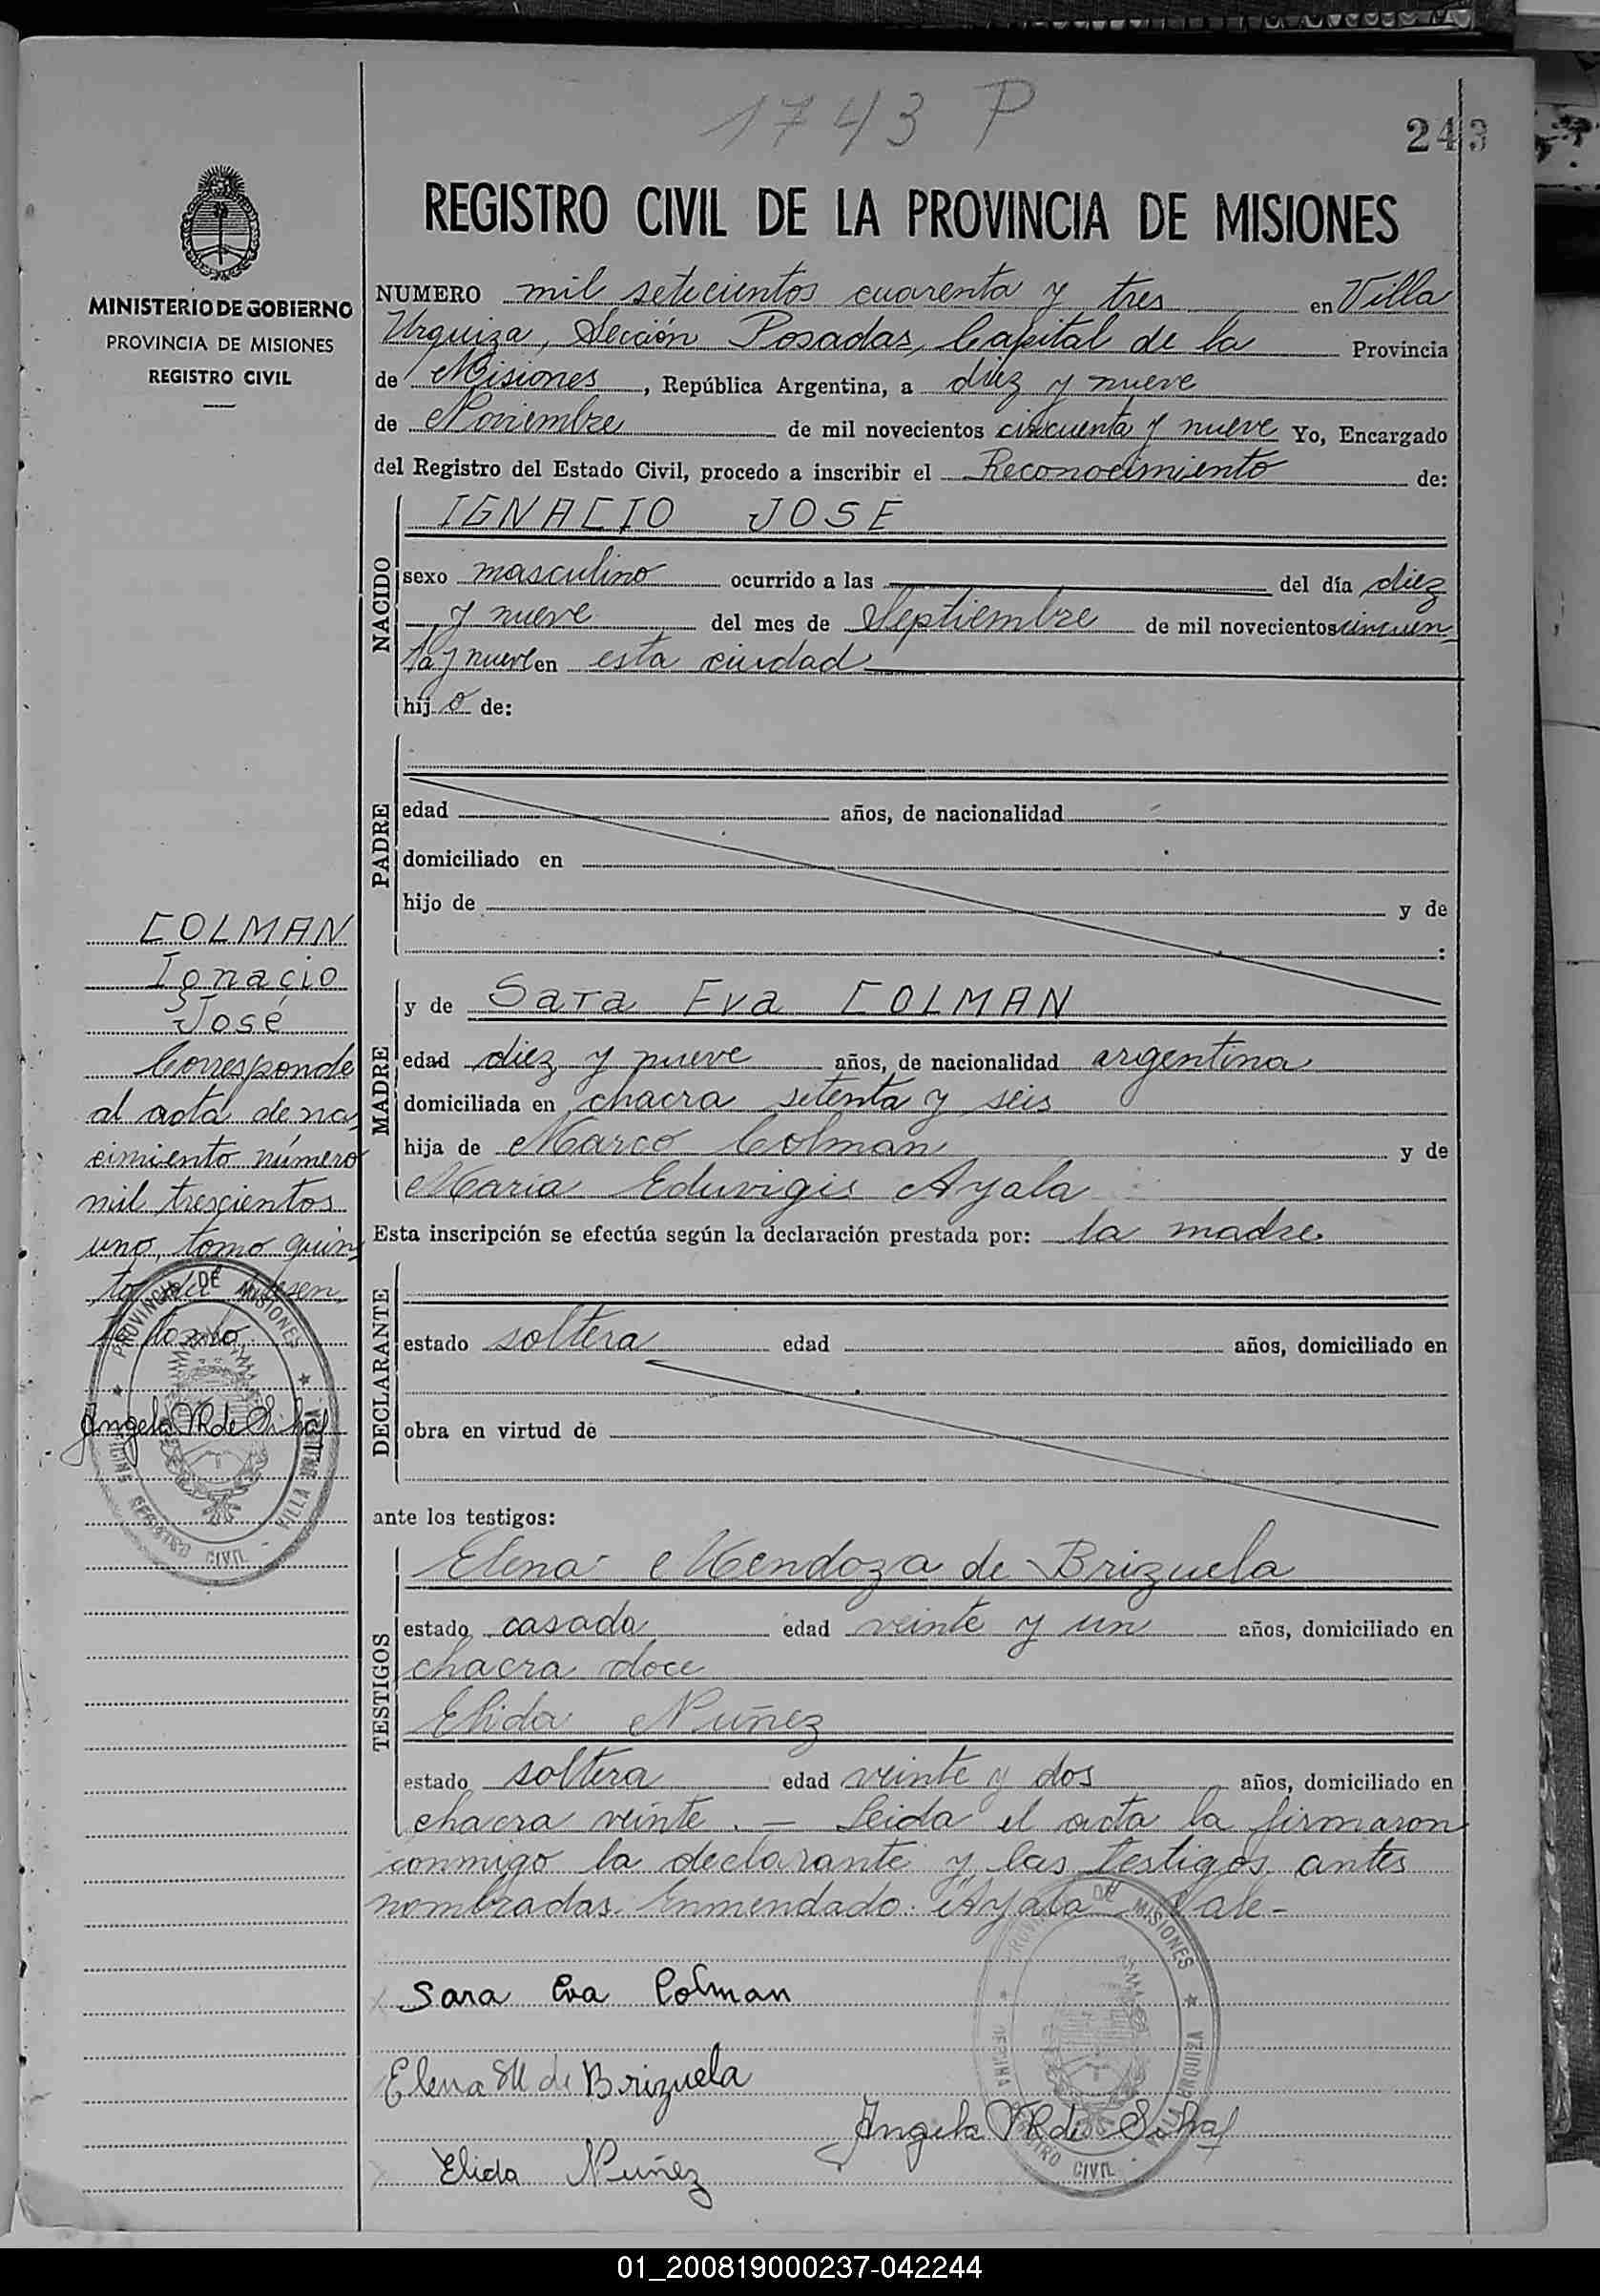 1743 P
243
REGISTRO CIVIL DE LA PROVINCIA DE MISIONES
MINISTERIO DE GOBIERNO
PROVINCIA DE MISIONES
REGISTRO CIVIL
NUMERO mil setecientos cuarenta y tres en Villa
Urquiza, Sección Posadas, Capital de la Provincia
de Misiones, República Argentina, a diez y nueve
de Noviembre de mil novecientos cincuenta y nueve Yo, Encargado
del Registro del Estado Civil, procedo a inscribir el Reconocimiento de:
NACIDO
IGNACIO JOSE
sexo masculino ocurrido a las del día diez
y nueve del mes de Septiembre de mil novecientos cincuen
ta y nueve en esta ciudad
hijo de:
PADRE
edad años, de nacionalidad
domiciliado en
hijo de y de
:
COLMAN
Ignacio
José
Corresponde
al acta de na
cimiento número
mil trescientos
uno, tomo quin
to
MADRE
y de Sara Eva COLMAN
edad diez y nueve años, de nacionalidad argentina
domiciliada en chacra setenta y seis
hija de Marco Colman y de
María Eduvigis Ayala
Esta inscripción se efectúa según la declaración prestada por: la madre
DECLARANTE
estado soltera edad años, domiciliado en
obra en virtud de
PROVINCIA DE MISIONES
VILLA URQUIZA
REGISTRO CIVIL
ante los testigos:
TESTIGOS
Elena Mendoza de Brizuela
estado casada edad veinte y un años, domiciliado en
chacra doce
Elida Nuñez
estado soltera edad veinte y dos años, domiciliado en
chacra veinte. — Leida el acta la firmaron
conmigo la declarante y las testigos antes
nombradas. Enmendado: "Ayala" Vale-
Sara Eva Colman
Elena M de Brizuela
Angela
Elida Nuñez
PROVINCIA DE MISIONES
VILLA URQUIZA
REGISTRO CIVIL
01_200819000237-042244